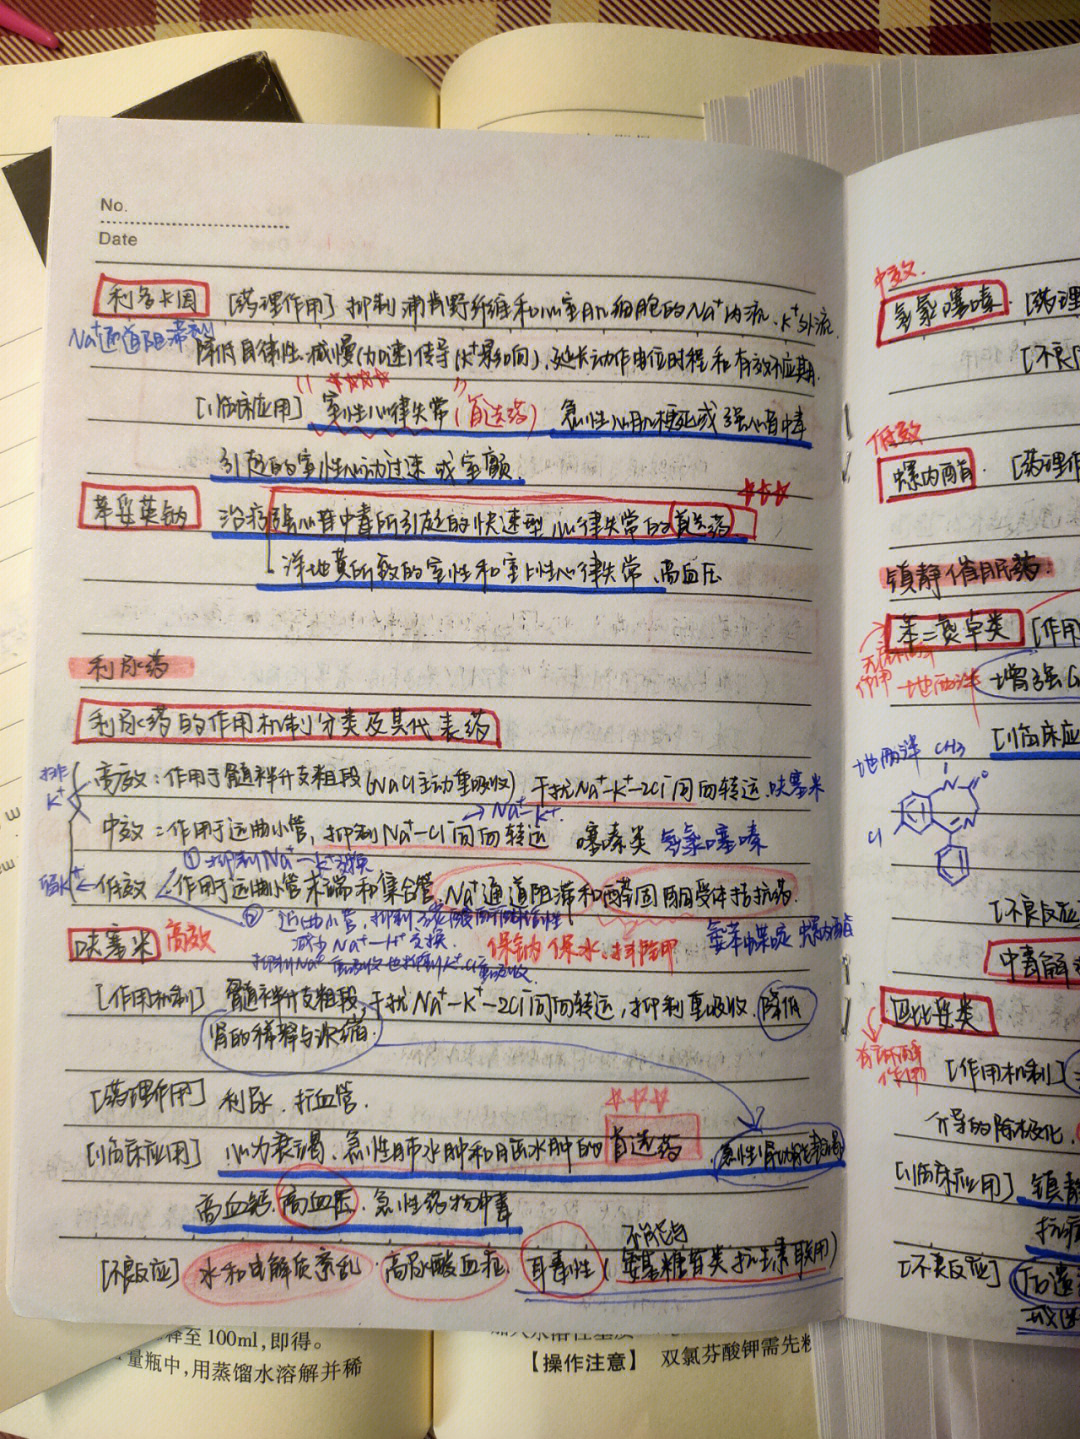 No.
Date
利多卡因 [药理作用] 抑制浦肯野纤维和心室肌细胞的Na⁺内流、K⁺外流
Na⁺通道阻滞剂
降低自律性、减慢(加速)传导(K⁺影响)、延长动作电位时程和有效不应期
[临床应用] 室性心律失常(首选药) 急性心肌梗死或强心苷中毒
引起的室性心动过速或室颤
苯妥英钠 治疗强心苷中毒所引起的快速型心律失常的首选药
洋地黄所致的室性和室上性心律失常、高血压
利尿药
利尿药的作用机制分类及其代表药
排K⁺
高效:作用于髓袢升支粗段(NaCl主动重吸收) 干扰Na⁺-K⁺-2Cl⁻同向转运、呋塞米
→Na⁺-K⁺
中效:作用于远曲小管,抑制Na⁺-Cl⁻同向转运 噻嗪类 氢氯噻嗪
①抑制Na⁺-K⁺交换
留K⁺←低效 作用于远曲小管末端和集合管,Na⁺通道阻滞和醛固酮受体拮抗药
②近曲小管,抑制碳酸酐酶活性
减少Na⁺-H⁺交换 保钠保水、排钾 氨苯蝶啶 螺内酯
抑制Na⁺重吸收也抑制K⁺、Cl⁻重吸收
呋塞米 高效
[作用机制] 髓袢升支粗段干扰Na⁺-K⁺-2Cl⁻同向转运,抑制重吸收、降低
肾的稀释与浓缩
[药理作用] 利尿、扩血管.
[临床应用] 心力衰竭、急性肺水肿和脑水肿的首选药、急性肾功能衰竭
高血钙、高血压、急性药物中毒
不能与
[不良反应] 水和电解质紊乱、高尿酸血症、耳毒性(氨基糖苷类抗生素联用)
中效.
氢氯噻嗪. [药理
[不良反
低效
螺内酯. [药理作
镇静催眠药:
苯二氮䓬类 [作用
作用 地西泮 增强G
[临床应
地西泮 CH₃
N
O
Cl
N
[不良反应
中毒解
巴比妥类
有麻醉作用
[作用机制]
介导的除极化,
[临床应用] 镇静
抗癫
[不良反应] 后遗
释至100ml,即得。
量瓶中,用蒸馏水溶解并稀
【操作注意】 双氯芬酸钾需先粉